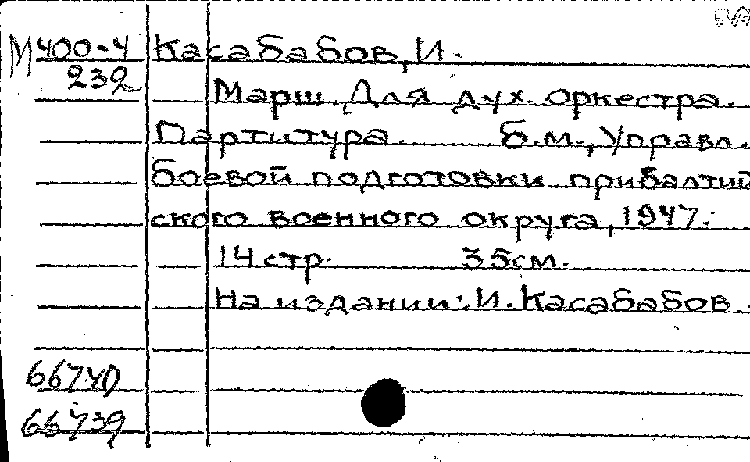 М 400-4 Касабабов, И.
232
Марш. Для дух. оркестра.
Партитура. б.м., Управл.
боевой подготовки прибалтий
ского военного округа, 1947.
14 стр. 35см.
На издании: И. Касабабов
66740
66739